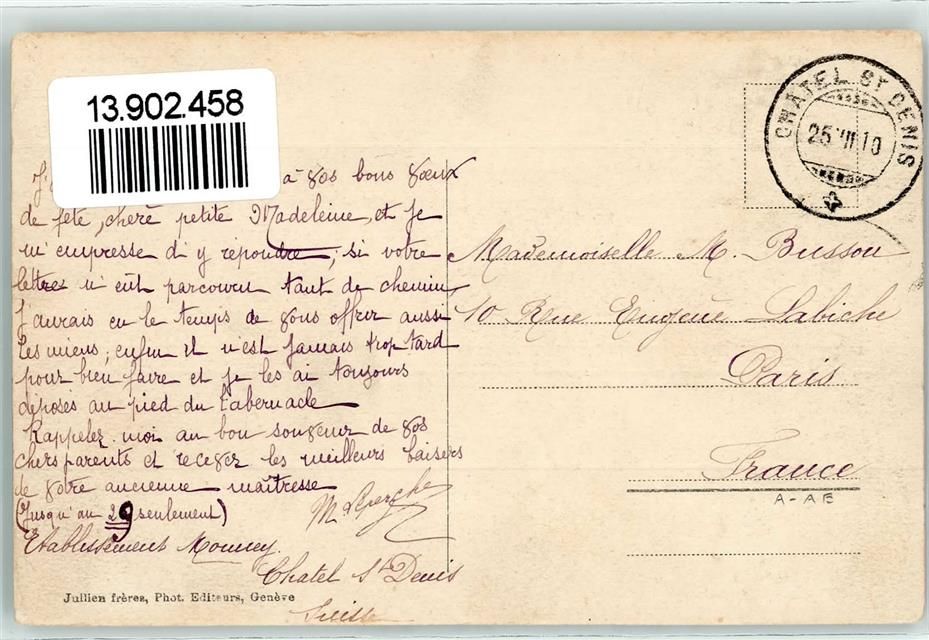 13.902.458
CHATEL ST DENIS
25 VII 10
J
à vos bons vœux
de fête, chère petite Madeleine, et je
m'empresse d'y répondre, si votre
lettre n'eut parcouru tant de chemin
J'aurais eu le temps de vous offrir aussi
les miens; enfin il n'est jamais trop tard
pour bien faire et je les ai toujours
déposés au pied du tabernacle
Rappelez moi au bon souvenir de vos
chers parents et recevez les meilleurs baisers
de votre ancienne maîtresse
(Jusqu'au 29 seulement)
Etablissement
Chatel St Denis
Suisse
Mademoiselle M. Busson
10 Rue Eugène Labiche
Paris
France
A-AE
Jullien frères, Phot. Editeurs, Genève